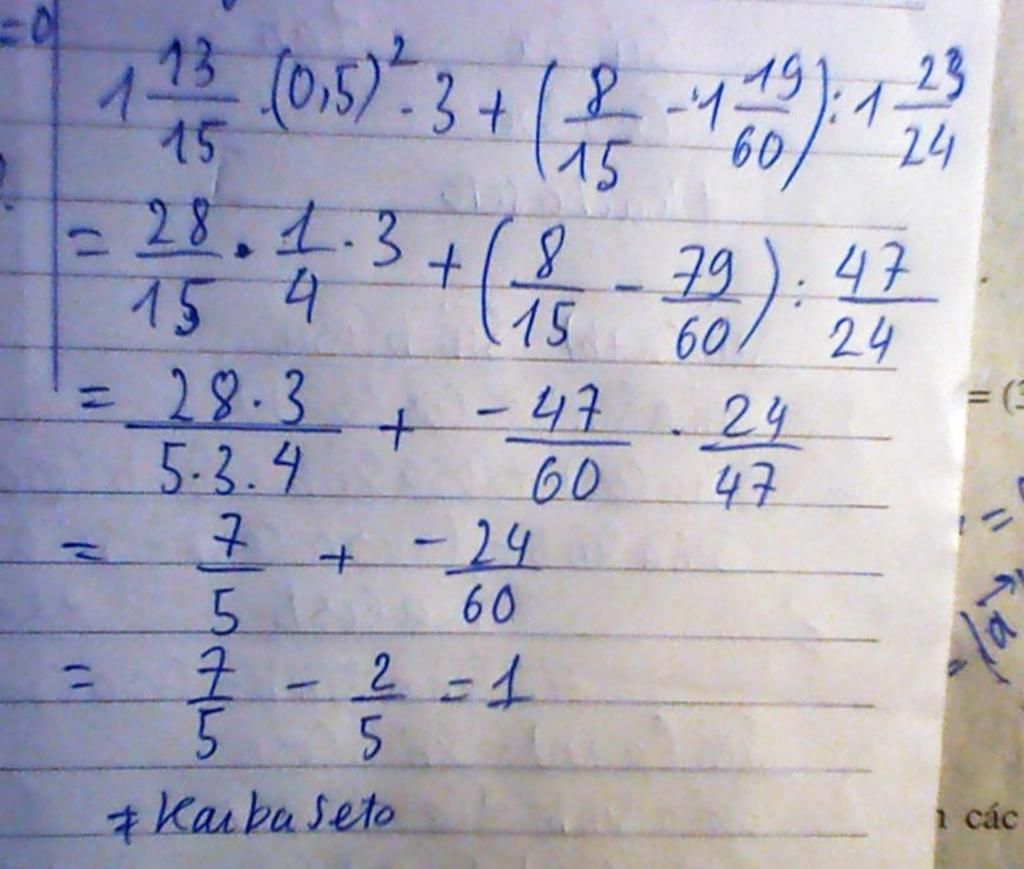 =0
1 13/15 . (0,5)² . 3 + (8/15 - 1 19/60) : 1 23/24
= 28/15 . 1/4 . 3 + (8/15 - 79/60) : 47/24
= 28.3/5.3.4 + -47/60 . 24/47
= 7/5 + -24/60
= 7/5 - 2/5 = 1
# Kaiba Seto
= (3
các